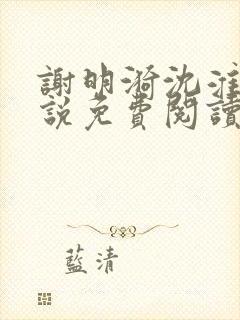 謝明漪沈淮
說免費閱讀
藍清